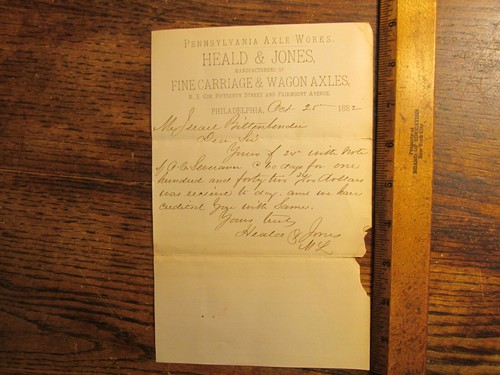 PENNSYLVANIA AXLE WORKS.
HEALD & JONES,
MANUFACTURERS OF
FINE CARRIAGE & WAGON AXLES,
N. E. COR. STREET AND FAIRMOUNT AVENUE.
PHILADELPHIA, Oct 25 1882
Israel Bittenbender
Dear Sir
Yours of 24 with Note
of 60 days for one
hundred and forty two dollars
was received to day, and we have
credited you with same.
Yours truly
Heald & Jones
Property of
BOARD OF EDUCATION
New York City